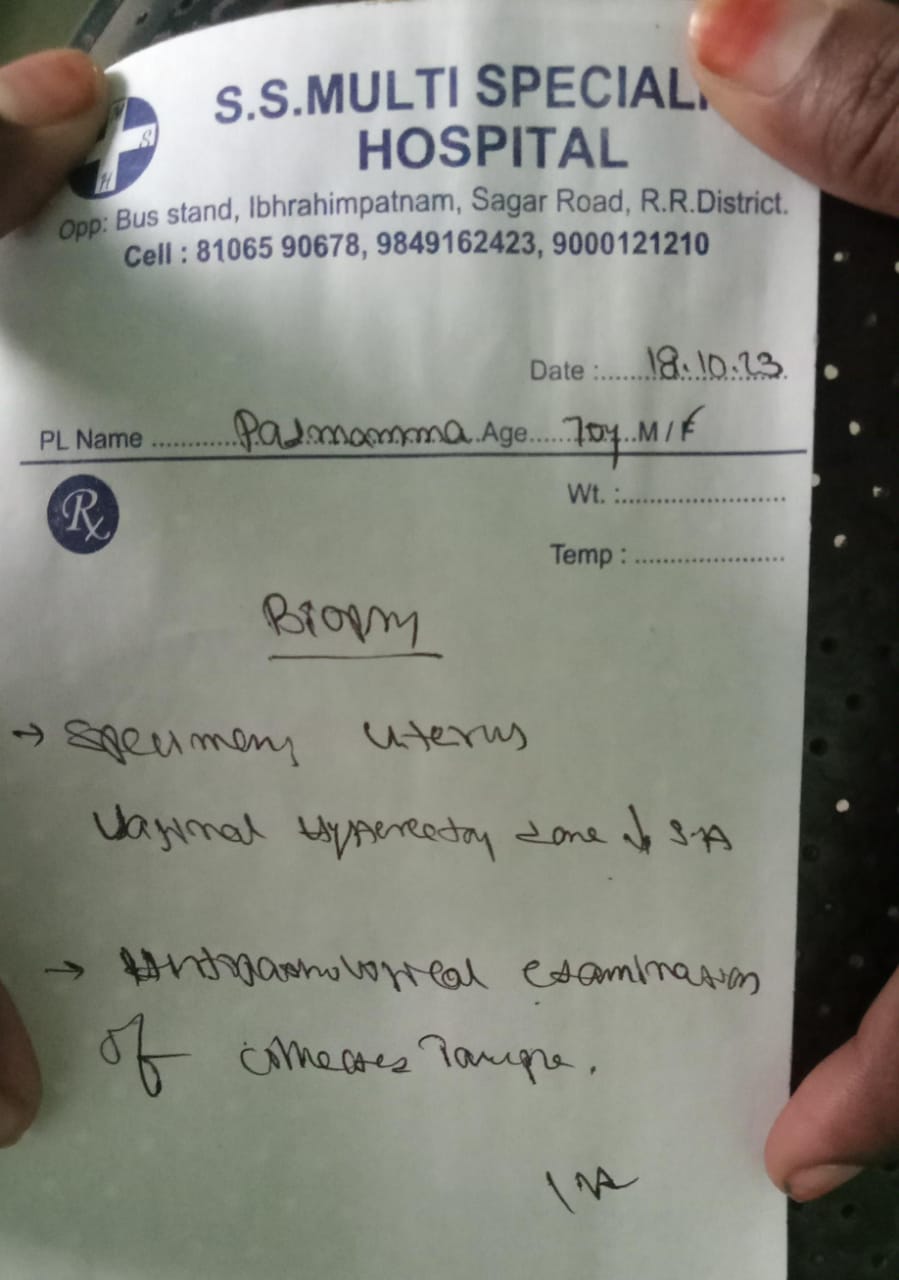 S.S.MULTI SPECIALI
HOSPITAL
Opp: Bus stand, Ibhrahimpatnam, Sagar Road, R.R.District.
Cell : 81065 90678, 9849162423, 9000121210
Date :......18.10.23
PL Name ............Padmamma Age......70y..M / F
Rx
Wt. :........................
Temp : ......................
Biopsy
→ Specimen, uterus
Vaginal Hysterectomy done
→ Histopathological examination
of